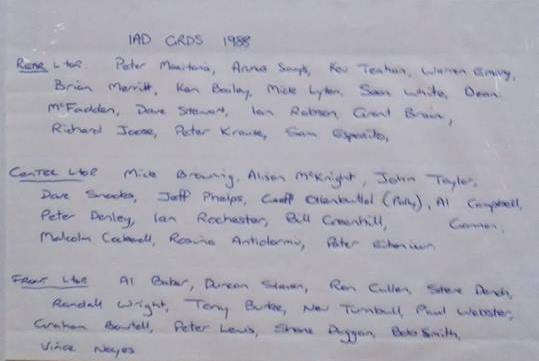 IAD GRDS 1988
REAR L to R Peter Maaitana, Kev Teahan, Warren
Brian Merritt, Ken Bailey, Mick Lyten, Sean White, Dean
McFadden, Dave Stewart, Ian Robson, Grant Brain,
Richard Joose, Peter Krause, Sam Esposito,
CENTER L to R Mick Browning, Alison McKnight, John Taylor,
Dave Snacks, Jeff Phelps, Geoff (Polly), Al Campbell,
Peter Denley, Ian Rochester, Bill Greenhill,
Malcolm Cockerell, Rosina Peter
FRONT L to R Al Baker, Duncan Ron Cullen, Steve
Randall Wright, Tony Burke, Nev Turnbull, Paul Webster,
Graham Bartell, Peter Lewis, Shane Duggan, Bob Smith,
Vince Noyes